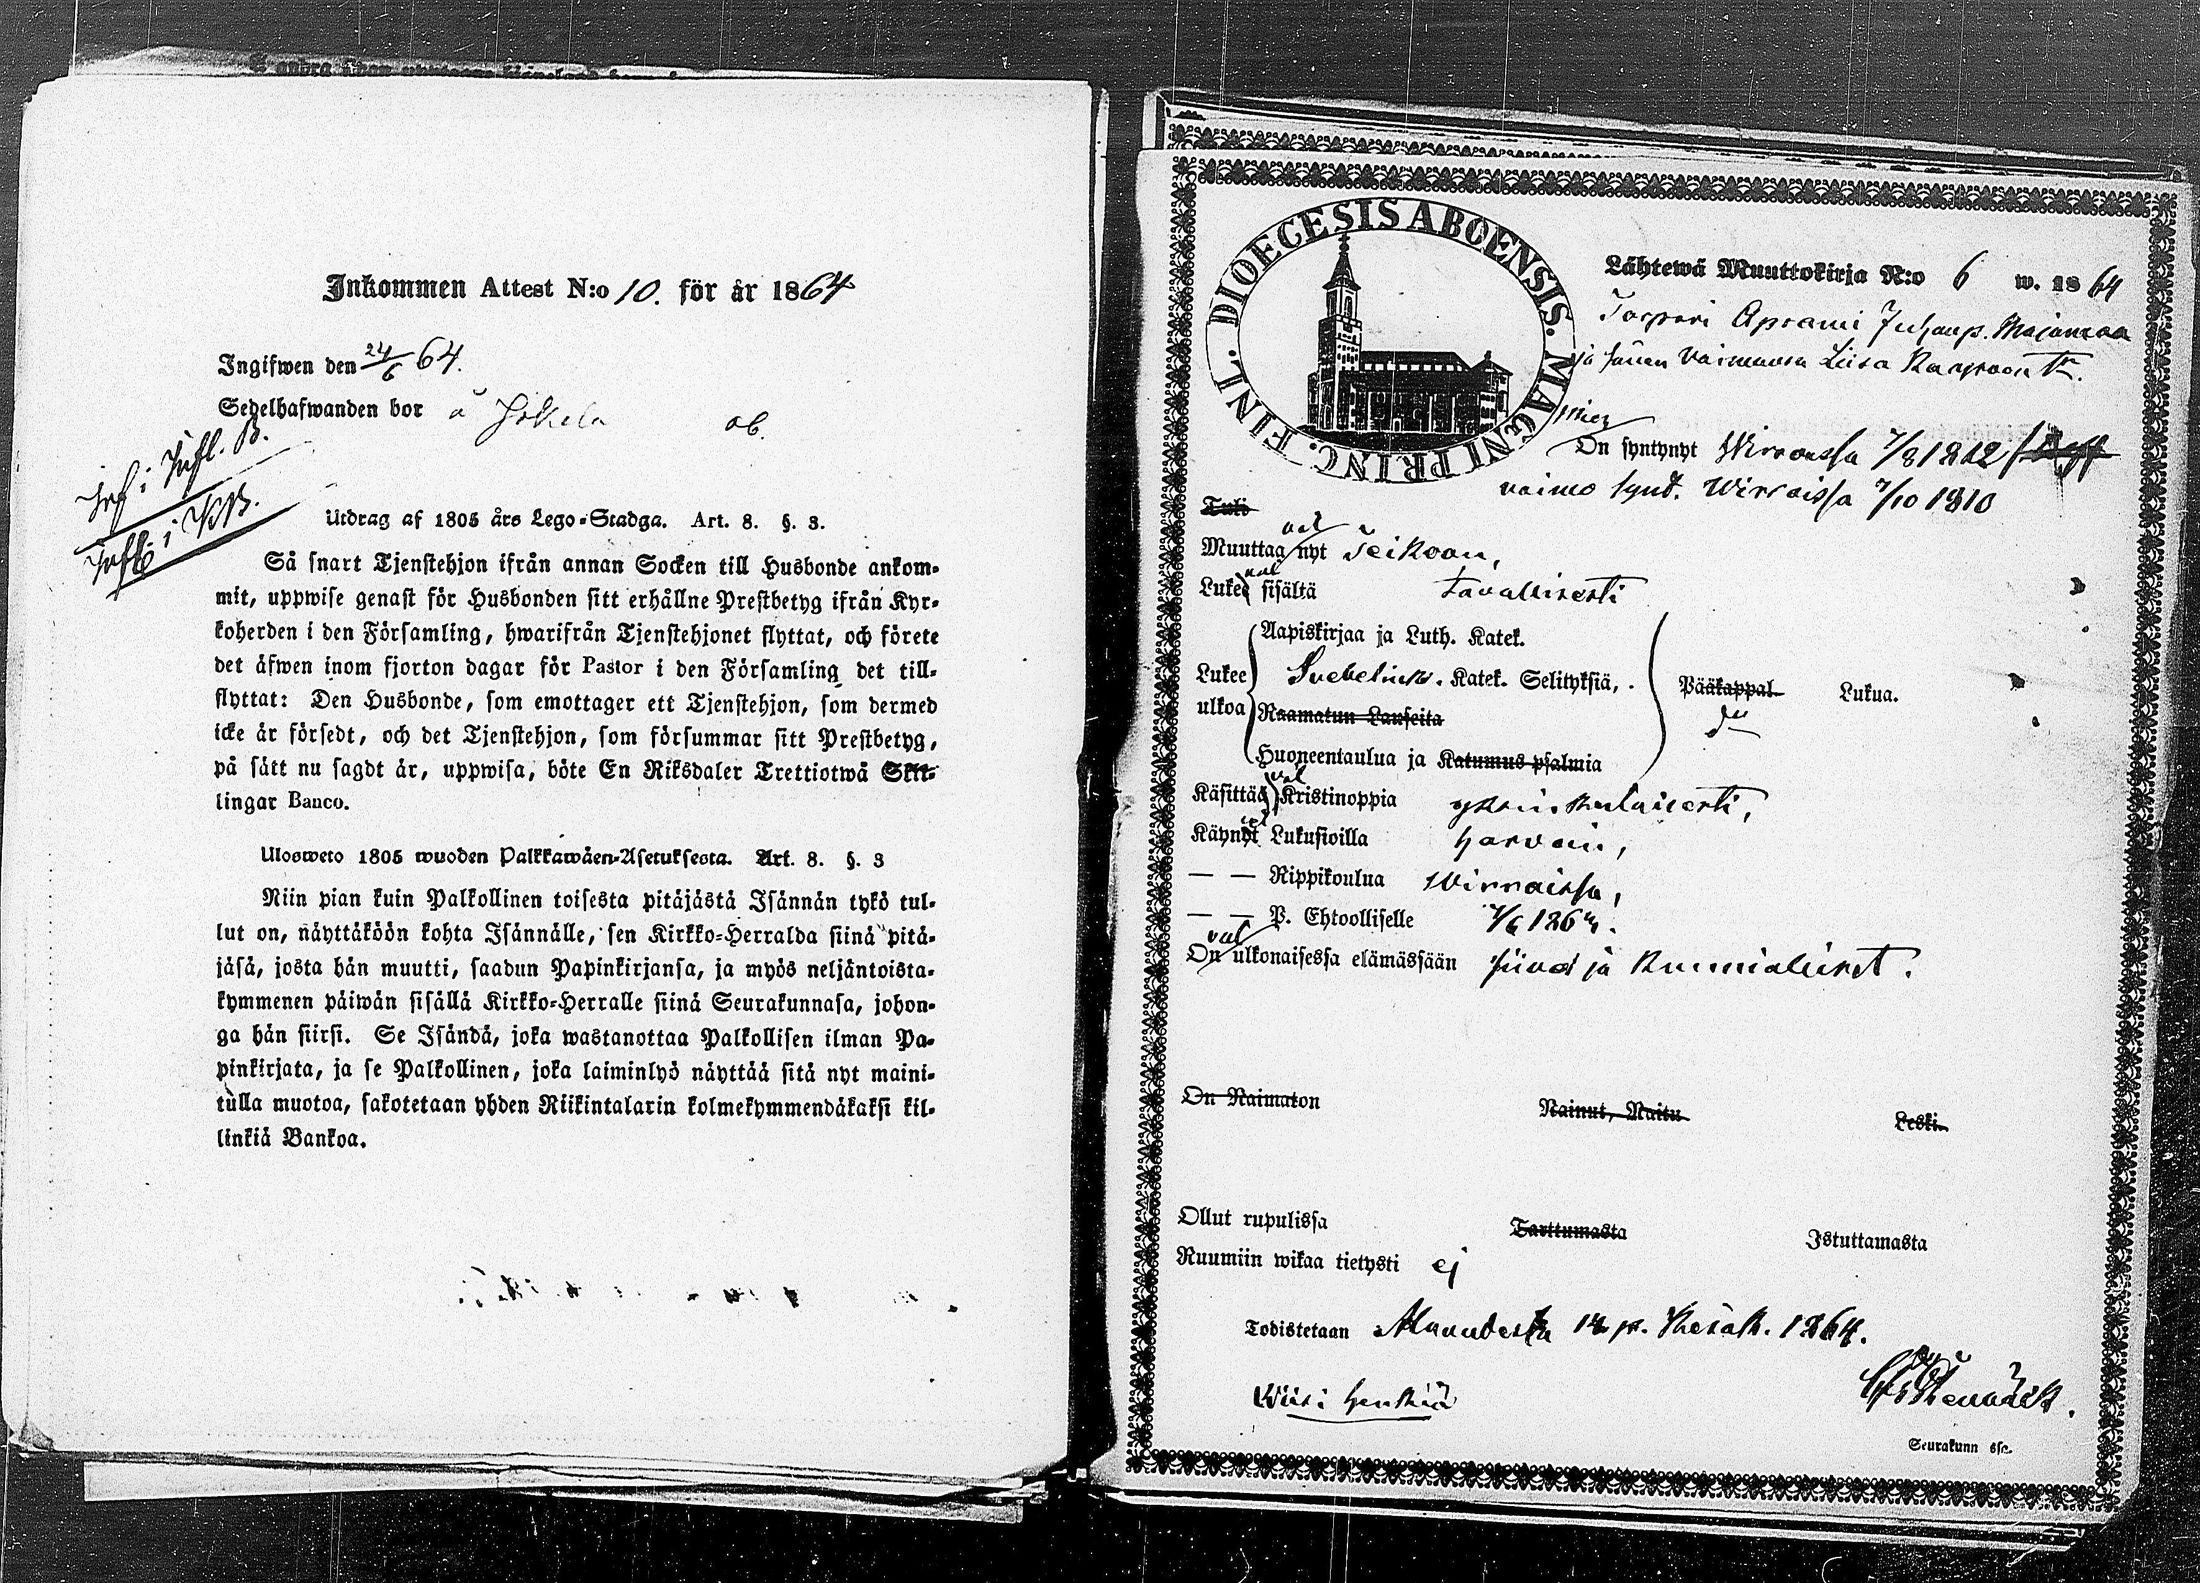 Inkommen Attest N:o 10. för år 1864
Ingifwen den 24/6 64.
Sedelhafwanden bor å Jokela ob.
Inf. i Infl. B.
Inf. i KB.
Utdrag af 1805 års Lego-Stadga. Art. 8. §. 3.
Så snart Tjenstehjon ifrån annan Socken till Husbonde ankom-
mit, uppwise genast för Husbonden sitt erhållne Prestbetyg ifrån Kyr-
koherden i den Församling, hwarifrån Tjenstehjonet flyttat, och förete
det äfwen inom fjorton dagar för Pastor i den Församling det till-
flyttat: Den Husbonde, som emottager ett Tjenstehjon, som dermed
icke är försedt, och det Tjenstehjon, som försummar sitt Prestbetyg,
på sätt nu sagdt är, uppwisa, böte En Riksdaler Trettiotwå Skil-
lingar Banco.
Ulosweto 1805 wuoden Palkkawäen-Asetuksesta. Art. 8. §. 3
Niin pian kuin Palkollinen toisesta pitäjästä Isännän tykö tul-
lut on, näyttäköön kohta Isännälle, sen Kirkko-Herralda siinä pitä-
jäsä, josta hän muutti, saadun Papinkirjansa, ja myös neljäntoista-
kymmenen päiwän sisällä Kirkko-Herralle siinä Seurakunnasa, johon-
ga hän siirsi. Se Isändä, joka wastanottaa Palkollisen ilman Pa-
pinkirjata, ja se Palkollinen, joka laiminlyö näyttää sitä nyt maini-
tulla muotoa, sakotetaan yhden Riikintalarin kolmekymmendäkaksi kil-
linkiä Bankoa.
DIOECESIS ABOENSIS. MAGNI PRINC. FINL.
Lähtewä Muuttokirja N:o 6 w. 1864
Torpari Aprami Juhanp. Majamaa
ja hänen vaimonsa Liisa Kaapoon tr.
mies
On syntynyt Wirroissa 7/8 1812
vaimo synt. Wirroissa 7/10 1810
Tuli
Muuttaa vat nyt Teikoon,
Lukee vat sisältä tavallisesti
Aapiskirjaa ja Luth. Katek.
Lukee ulkoa Svebeliuks. Katek. Selityksiä, Pääkappal. Lukua.
Raamatun Lauseita
Huoneentaulua ja Katumus-psalmia
Käsittää vät Kristinoppia yksinkertaisesti,
Käynyt Lukusioilla harvoin,
— — Rippikoulua Wirroissa,
— — P. Ehtoolliselle 1864.
On vat ulkonaisessa elämässään siivot ja kunnialliset.
On Naimaton Nainut, Naitu Leski
Ollut rupulissa Tarttumasta Istuttamasta
Ruumiin wikaa tietysti ej
Todistetaan Alavudesta 14 p. Kesäk. 1864.
Wiisi henkiä
Seurakunn